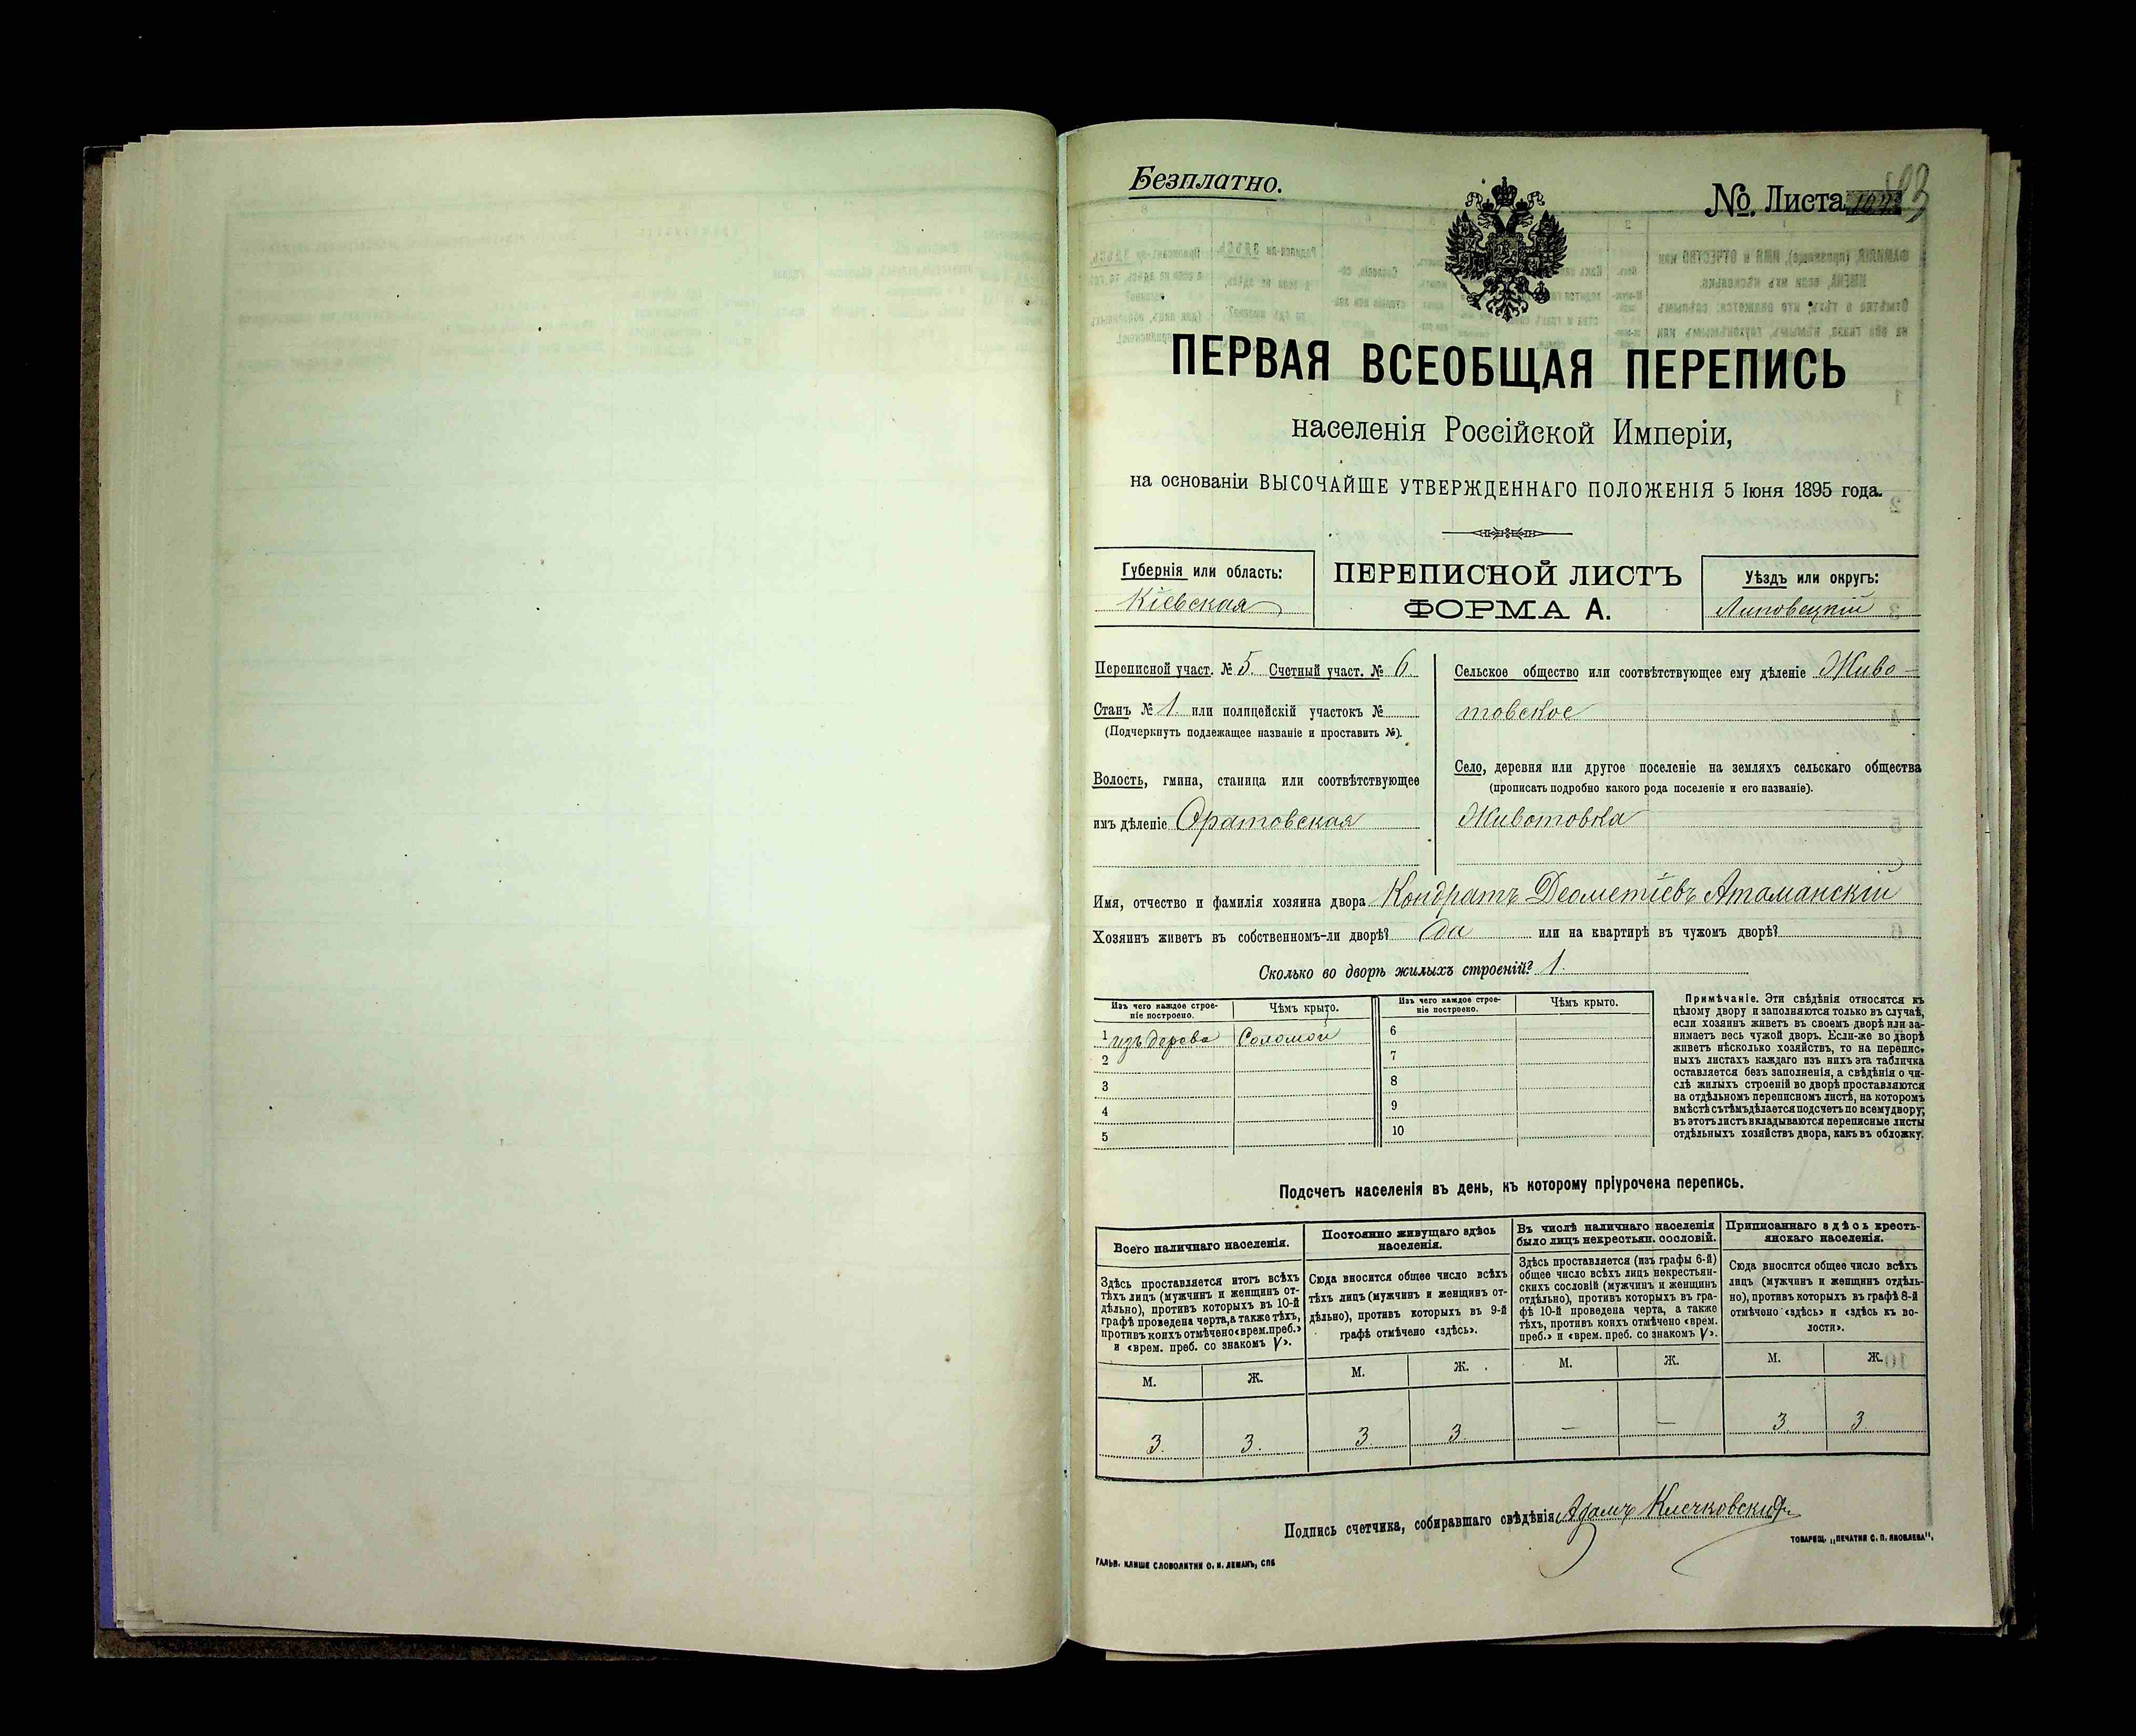 Безплатно.
№. Листа
ПЕРВАЯ ВСЕОБЩАЯ ПЕРЕПИСЬ
населенія Россійской Имперіи,
на основаніи ВЫСОЧАЙШЕ УТВЕРЖДЕННАГО ПОЛОЖЕНІЯ 5 Іюня 1895 года.
Губернія или область:
Кіевская
ПЕРЕПИСНОЙ ЛИСТЪ
ФОРМА А.
Уѣздъ или округъ:
Липовецкій
Переписной участ. № 5. Счетный участ. № 6.
Станъ № 1. или полицейскій участокъ №
(Подчеркнуть подлежащее названіе и проставить №).
Волость, гмина, станица или соотвѣтствующее
имъ дѣленіе Оратовская
Сельское общество или соотвѣтствующее ему дѣленіе Живо-
товское
Село, деревня или другое поселеніе на земляхъ сельскаго общества
(прописать подробно какого рода поселеніе и его названіе).
Животовка
Имя, отчество и фамилія хозяина двора Кондратъ Деометіевъ Атаманскій
Хозяинъ живетъ въ собственномъ-ли дворѣ? да или на квартирѣ въ чужомъ дворѣ?
Сколько во дворѣ жилыхъ строеній? 1.
Изъ чего каждое строе-
ніе построено.
Чѣмъ крыто.
1 изъ дерева Соломой
2
3
4
5
Изъ чего каждое строе-
ніе построено.
Чѣмъ крыто.
6
7
8
9
10
Примѣчаніе. Эти свѣдѣнія относятся къ
цѣлому двору и заполняются только въ случаѣ,
если хозяинъ живетъ въ своемъ дворѣ или за-
нимаетъ весь чужой дворъ. Если-же во дворѣ
живетъ нѣсколько хозяйствъ, то на перепис-
ныхъ листахъ каждаго изъ нихъ эта табличка
оставляется безъ заполненія, а свѣдѣнія о чи-
слѣ жилыхъ строеній во дворѣ проставляются
на отдѣльномъ переписномъ листѣ, на которомъ
вмѣстѣ съ тѣмъ дѣлается подсчетъ по всему двору;
въ этотъ листъ вкладываются переписные листы
отдѣльныхъ хозяйствъ двора, какъ въ обложку.
Подсчетъ населенія въ день, къ которому пріурочена перепись.
Всего наличнаго населенія.
Здѣсь проставляется итогъ всѣхъ
тѣхъ лицъ (мужчинъ и женщинъ от-
дѣльно), противъ которыхъ въ 10-й
графѣ проведена черта, а также тѣхъ,
противъ коихъ отмѣчено «врем. преб.»
и «врем. преб. со знакомъ V».
М. Ж.
3. 3.
Постоянно живущаго здѣсь
населенія.
Сюда вносится общее число всѣхъ
тѣхъ лицъ (мужчинъ и женщинъ от-
дѣльно), противъ которыхъ въ 9-й
графѣ отмѣчено «здѣсь».
М. Ж.
3. 3.
Въ числѣ наличнаго населенія
было лицъ некрестьян. сословій.
Здѣсь проставляется (изъ графы 6-й)
общее число всѣхъ лицъ некрестьян-
скихъ сословій (мужчинъ и женщинъ
отдѣльно), противъ которыхъ въ гра-
фѣ 10-й проведена черта, а также
тѣхъ, противъ коихъ отмѣчено «врем.
преб.» и «врем. преб. со знакомъ V».
М. Ж.
— —
Приписаннаго здѣсь кресть-
янскаго населенія.
Сюда вносится общее число всѣхъ
лицъ (мужчинъ и женщинъ отдѣль-
но), противъ которыхъ въ графѣ 8-й
отмѣчено «здѣсь» и «здѣсь къ во-
лости».
М. Ж.
3. 3
Подпись счетчика, собиравшаго свѣдѣнія Адамъ Клечковскій
ТОВАРИЩ. „ПЕЧАТНЯ С. П. ЯКОВЛЕВА".
ГАЛЬВ. КЛИШЕ СЛОВОЛИТНИ О. И. ЛЕМАНЪ, СПБ